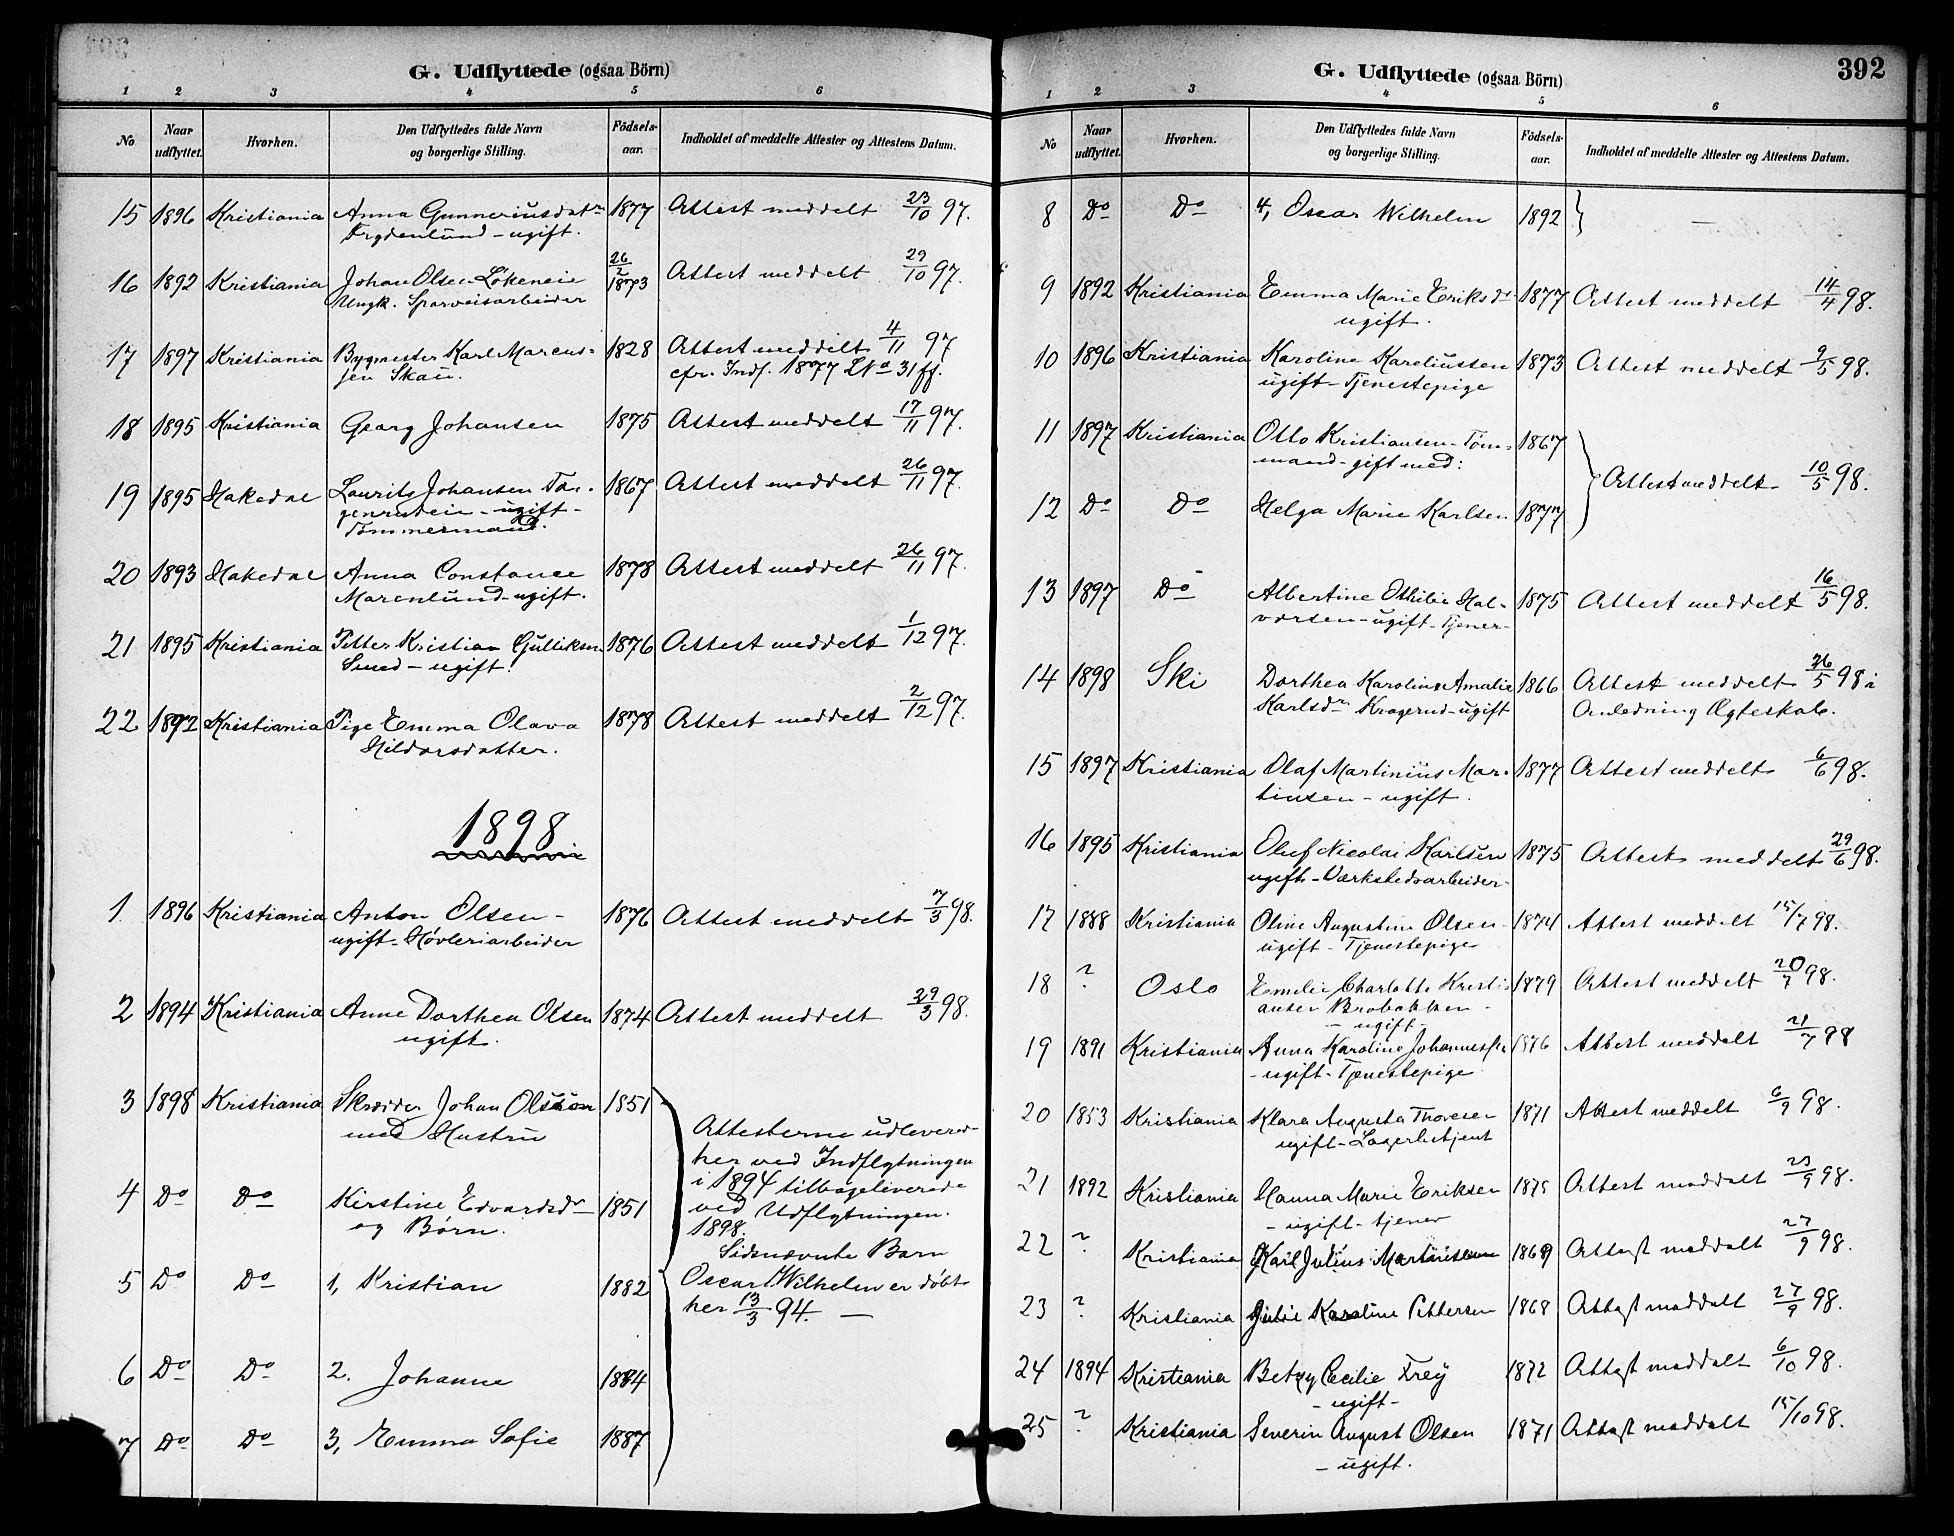 G. Udflyttede (ogsaa Börn)
1 2 3 4 5 6
No Naar udflyttet. Hvorhen. Den Udflyttedes fulde Navn og borgerlige Stilling. Födsels-aar. Indholdet af meddelte Attester og Attestens Datum.
15 1896 Kristiania Anna Gunneriusdatr 1877 Attest meddelt 23/10 97.
Frydenlund - ugift.
16 1892 Kristiania Johan Olsen Lökeneie 26/2 1873 Attest meddelt 29/10 97.
Ungk. Sporveisarbeider
17 1897 Kristiania Bygmester Karl Marcus- 1828 Attest meddelt 4/11 97
sen Skau. cfr. Indf. 1877 Lno 31 ff.
18 1895 Kristiania Georg Johansen 1875 Attest meddelt 17/11 97.
19 1895 Hakedal Laurits Johansen 1867 Attest meddelt 26/11 97.
- ugift -
Tömmermand.
20 1893 Hakedal Anna Constance 1878 Attest meddelt 26/11 97.
Marenlund - ugift.
21 1895 Kristiania Petter Kristian Gulliksen 1876 Attest meddelt 1/12 97.
Smed - ugift.
22 1892 Kristiania Pige Emma Olava 1878 Attest meddelt 2/12 97.
Hildorsdatter.
1898
1 1896 Kristiania Anton Olsen - 1876 Attest meddelt 7/3 98.
ugift - Høvleriarbeider
2 1894 Kristiania Anne Dorthea Olsen 1874 Attest meddelt 29/3 98.
ugift.
3 1898 Kristiania Skrædder Johan Olsson 1851
med Hustru
Attesterne udlevered-
her ved Indflytningen
i 1894 tilbageleverede
ved Udflytningen.
1898.
Sidsnævnte Barn
Oscar Wilhelm er døbt
her 13/3 94. —
4 Do Do Kirstine Edvardsdr 1851
og Børn.
5 Do Do 1, Kristian 1882
6 Do Do 2. Johanne 1884
7 Do Do 3, Emma Sofie 1887
G. Udflyttede (ogsaa Börn)
392
1 2 3 4 5 6
No Naar udflyttet. Hvorhen. Den Udflyttedes fulde Navn og borgerlige Stilling. Födsels-aar. Indholdet af meddelte Attester og Attestens Datum.
8 Do Do 4, Oscar Wilhelm 1892 —
9 1892 Kristiania Emma Marie Eriksdr 1877 Attest meddelt 14/4 98.
ugift.
10 1896 Kristiania Karoline Kareliussen 1873 Attest meddelt 9/5 98.
ugift - Tjenestepige
11 1897 Kristiania Otto Kristiansen - Töm- 1867
mand - gift med: Attest meddelt 10/5 98.
12 Do Do Helga Marie Karlsen 1877
13 1897 Do Albertine Othilie Hal- 1875 Attest meddelt 16/5 98.
vorsen - ugift - Tjener -
14 1898 Ski Dorthea Karoline Amalie 1866 Attest meddelt 26/5 98 i
Karlsdr Kragerud - ugift Anledning Ægteskab.
15 1897 Kristiania Olaf Martinius Mar- 1877 Attest meddelt 6/6 98.
tinsen - ugift.
16 1895 Kristiania Oluf Nicolai Karlsen 1875 Attest meddelt 29/6 98.
ugift - Værkstedsarbeider -
17 1888 Kristiania Oline Augustine Olsen - 1874 Attest meddelt 15/7 98.
ugift - Tjenestepige
18 ? Oslo Emilie Charlotte Kristi- 1879 Attest meddelt 20/7 98.
ansen Brobakken -
- ugift -
19 1891 Kristiania Anna Karoline 1876 Attest meddelt 21/7 98
- ugift - Tjenestepige
20 1853 Kristiania Klara Augusta Thoresen 1871 Attest meddelt 6/9 98.
ugift - Lagerbetjent
21 1892 Kristiania Hanna Marie Eriksen 1875 Attest meddelt 23/9 98.
- ugift - tjener
22 ? Kristiania Karl Julius 1869 Attest meddelt 27/9 98.
23 ? Kristiania Julie Karoline Pettersen 1868 Attest meddelt 27/9 98.
24 1894 Kristiania Betzy Cecilie Frey 1872 Attest meddelt 6/10 98.
- ugift -
25 ? Kristiania Severin August Olsen 1871 Attest meddelt 15/10 98.
- ugift.